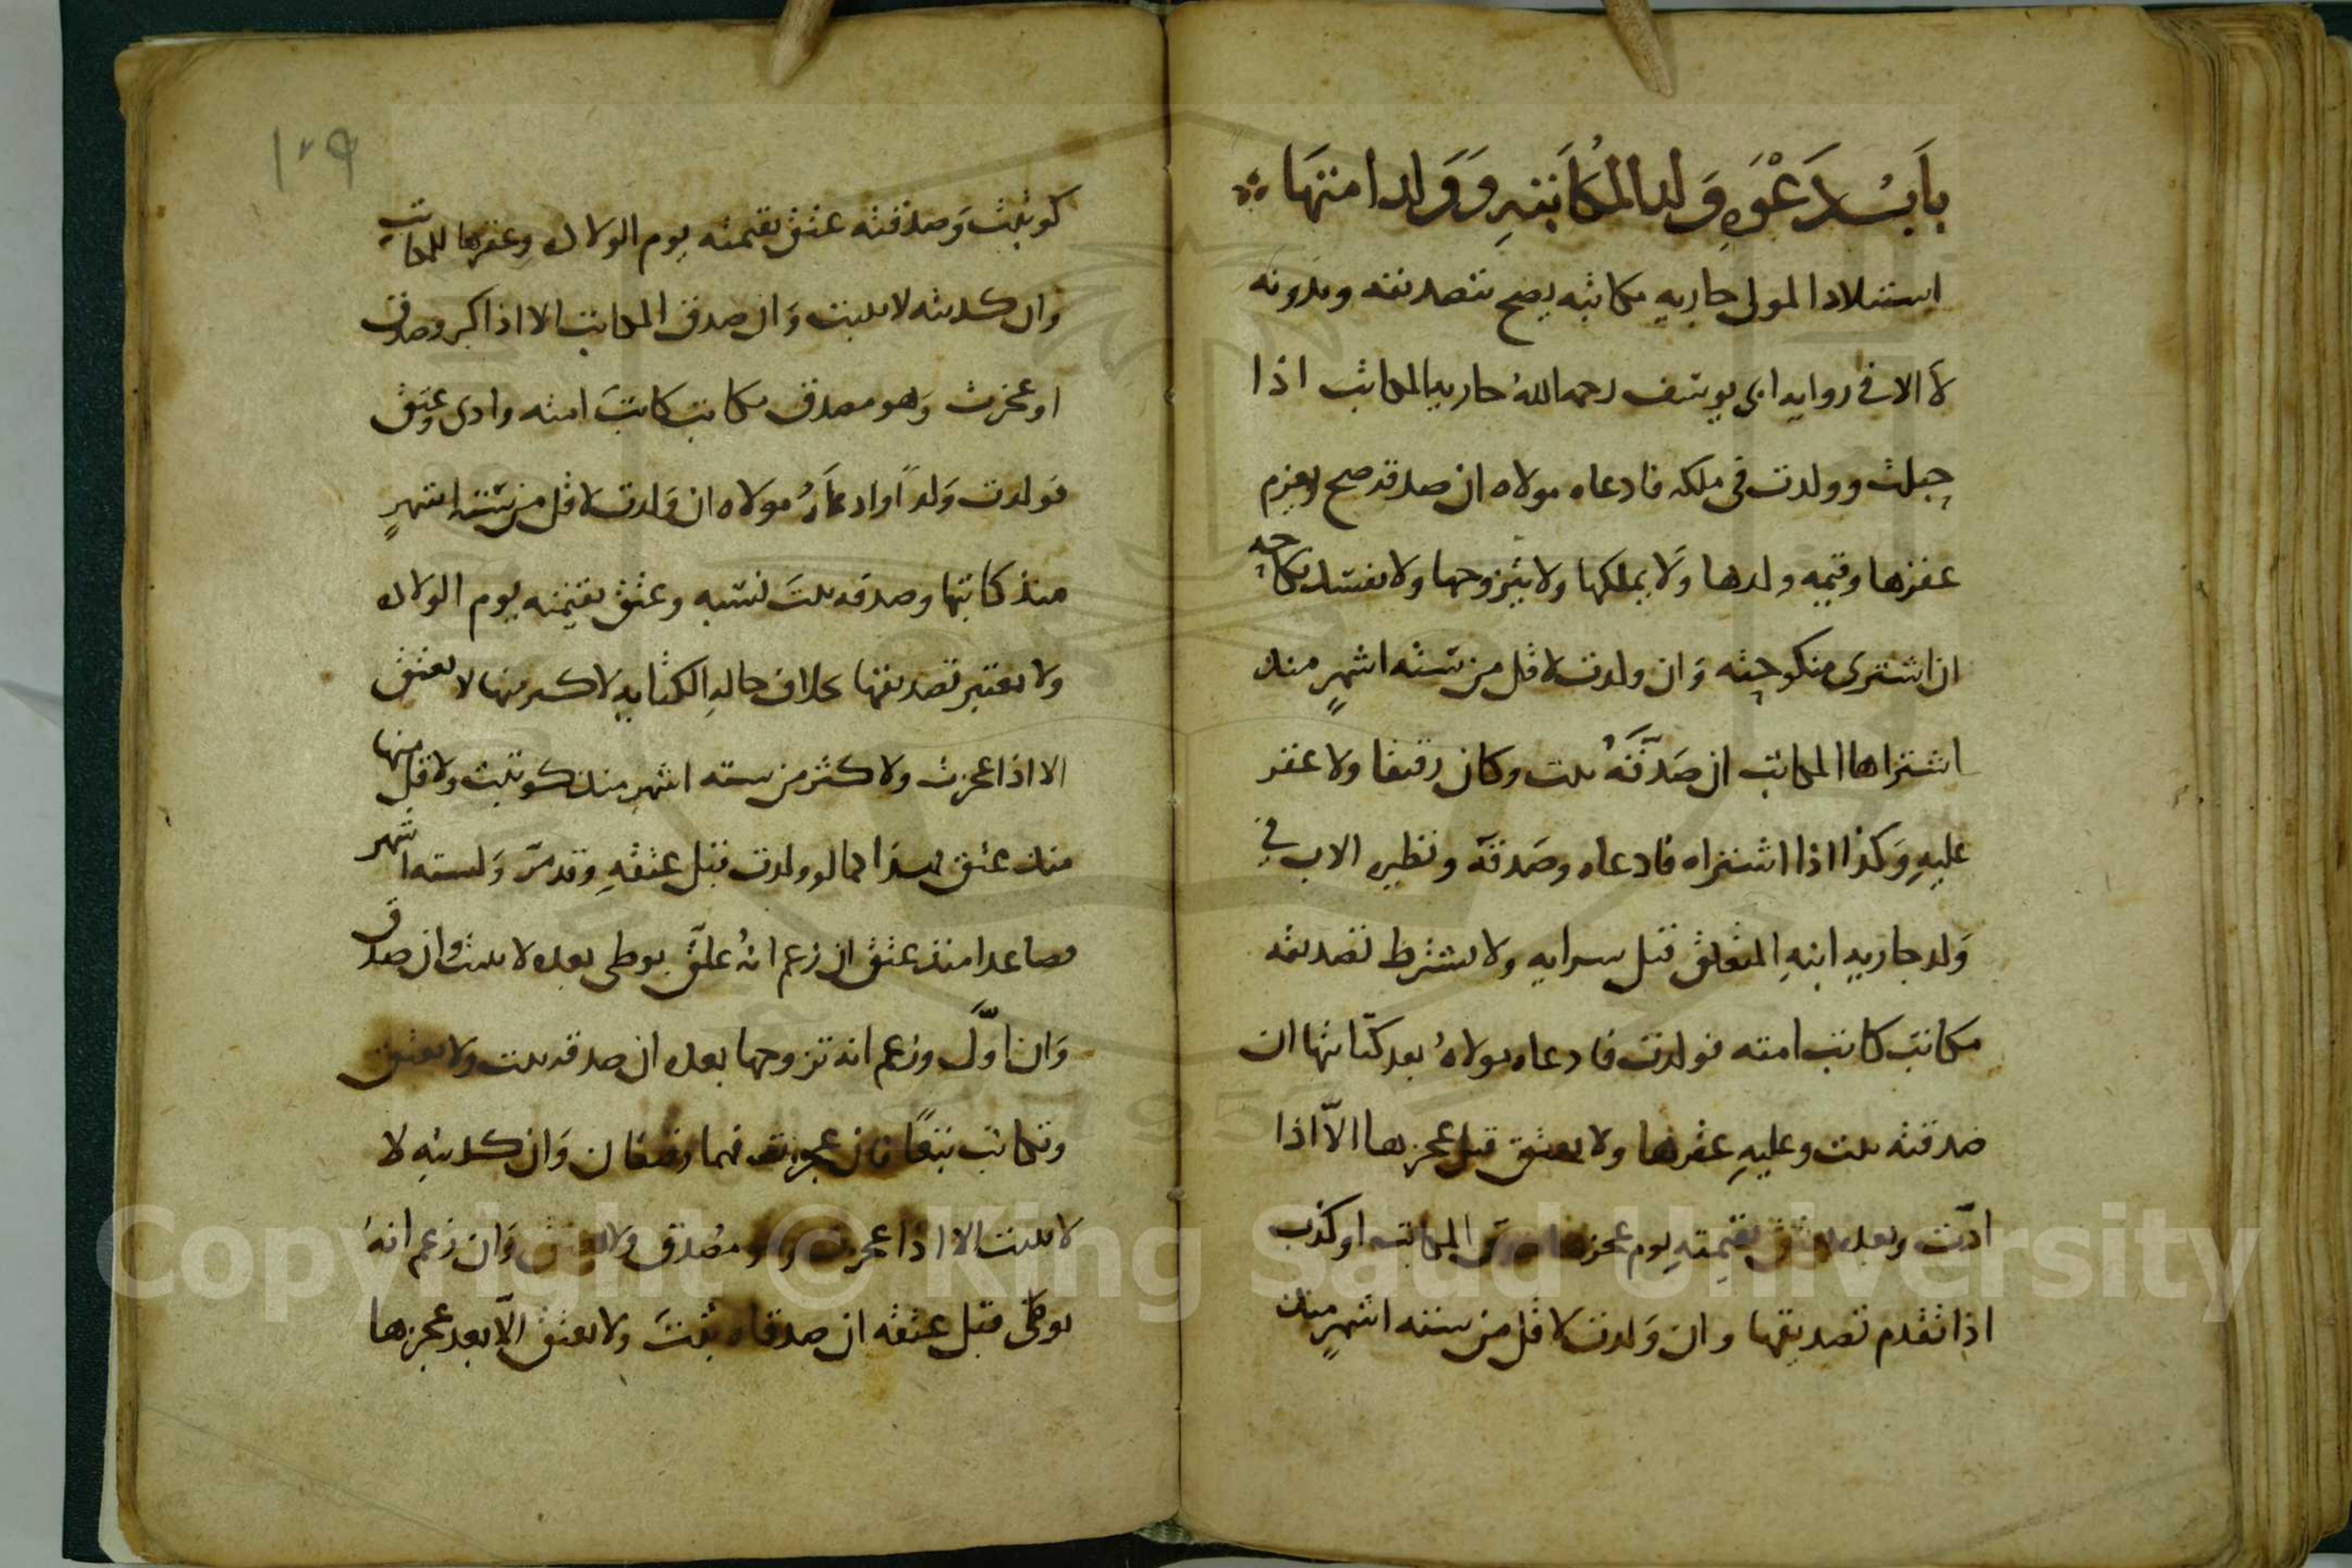 باب دعوة ولد المكاتبة وولد امتها
استيلاد المولى جارية مكاتبه يصح بتصديقه وبدونه
لا الا في رواية ابى يوسف رحمه الله جارية المكاتب اذا
حبلت وولدت في ملكه فادعاه مولاه ان صدقه صح ويغرم
عقرها وقيمة ولدها ولا يملكها ولا يتزوجها ولا يفسد نكاحه
ان اشترى منكوحته وان ولدت لاقل من ستة اشهرٍ منذ
اشتراها المكاتب ان صَدَّقَهُ يثبت وكان رقيقا ولا عقر
عليهِ وَكذا اذا اشتراه فادعاه وصَدقه ونظيره الاب في
وَلد جارية ابنهِ المعلق قبل سرايه ولا يشترط تصديقه
مكاتب كاتب امته فولدت فادعاه مولاهُ بعد كتابتها ان
صدقته يثبت وعليهِ عقرها ولا يعتق قبل عجزها الاّ اذا
ادّت وبعده يعتق بقيمتهِ يوم عجزها صدق المكاتب او كذب
اذا تقدم تصديقها وان وَلدت لاقل من ستة اشهرٍ منذ
١٠٩
كوتبت وَصدقته عتق بقيمته يوم الولاد وعقرها للمكاتب
وان كذبته لا يثبت وَان صدق المكاتب الا اذا كبر وصدق
او عجزت وَهو مصدق مكاتب كاتبَ امته وادى وعتق
فولدت وَلداً وادعاهُ مولاه ان وَلدت لاقل من ستة اشهرٍ
منذ كاتبها وصدقه يثبت نسبه وعتق بقيمته يوم الولاد
ولا يعتبر تصديقها بخلاف حالة الكتابة لاكثر منها لا يعتق
الا اذا عجزت ولاكثر من ستة اشهر منذ كوتبت ولاقل منها
منذ عتق فهذا كما لو ولدت قبل عتقهِ وقد مرّ وَلستة اشهر
فصاعدا منذ عتق ان زعم انهُ علق بوطئ بعده لا يثبت وان صدق
وَان اوّل وزعم انه تزوجها بعده ان صدقه يثبت وَلا يعتق
وتكاتب تبعًا فان عجزت فهما رقيقان وَان كذبتهِ لا
لا يثبت الا اذا عجزت وهو مصدق وَلا يعتق وَان زعم انهُ
بوطئ قبل عتقه ان صدقاه يثبتَ ولا يعتق الاّ بعد عجزها
Copyright © King Saud University